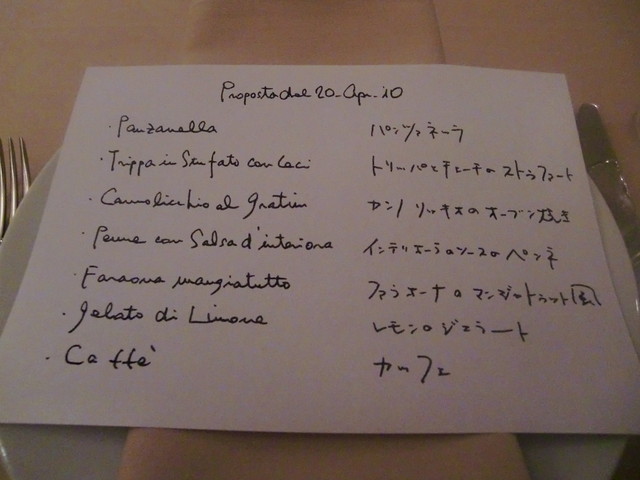 Proposta del 20-Apr-10
· Panzanella パンツァネーラ
· Trippa in Stufato con Ceci トリッパとチェーチのストゥファート
· Cannolicchio al gratin カンノリッキオのオーブン焼き
· Penne con Salsa d'interiora インテリオーラのソースのペンネ
· Faraona mangiatutto ファラオーナのマンジャトゥット風
· gelato di Limone レモンのジェラート
· Caffè カッフェ